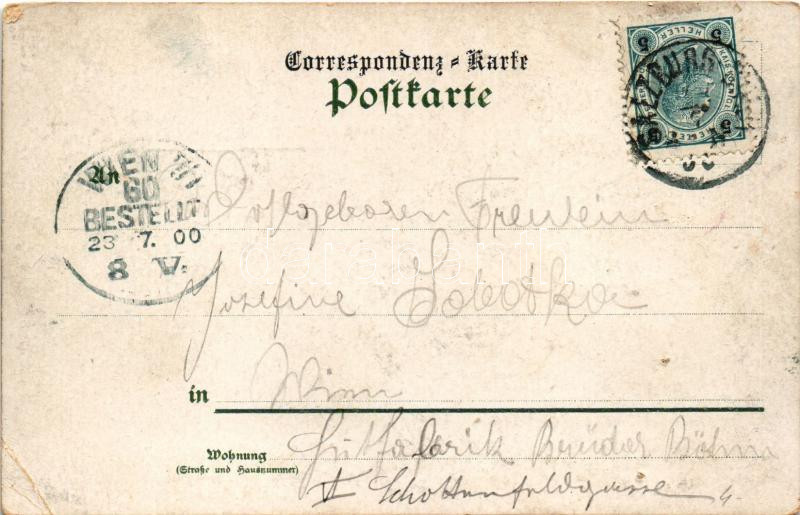 Correspondenz-Karte
Postkarte
5 HELLER 5
SALZBURG
An
WIEN
60
BESTELLT
23 7. 00
8 V.
Fräulein
Josefine
in Wien
Wohnung
(Straße und Hausnummer)
Hutfabrik Brüder Böhm
Schottenfeldgasse